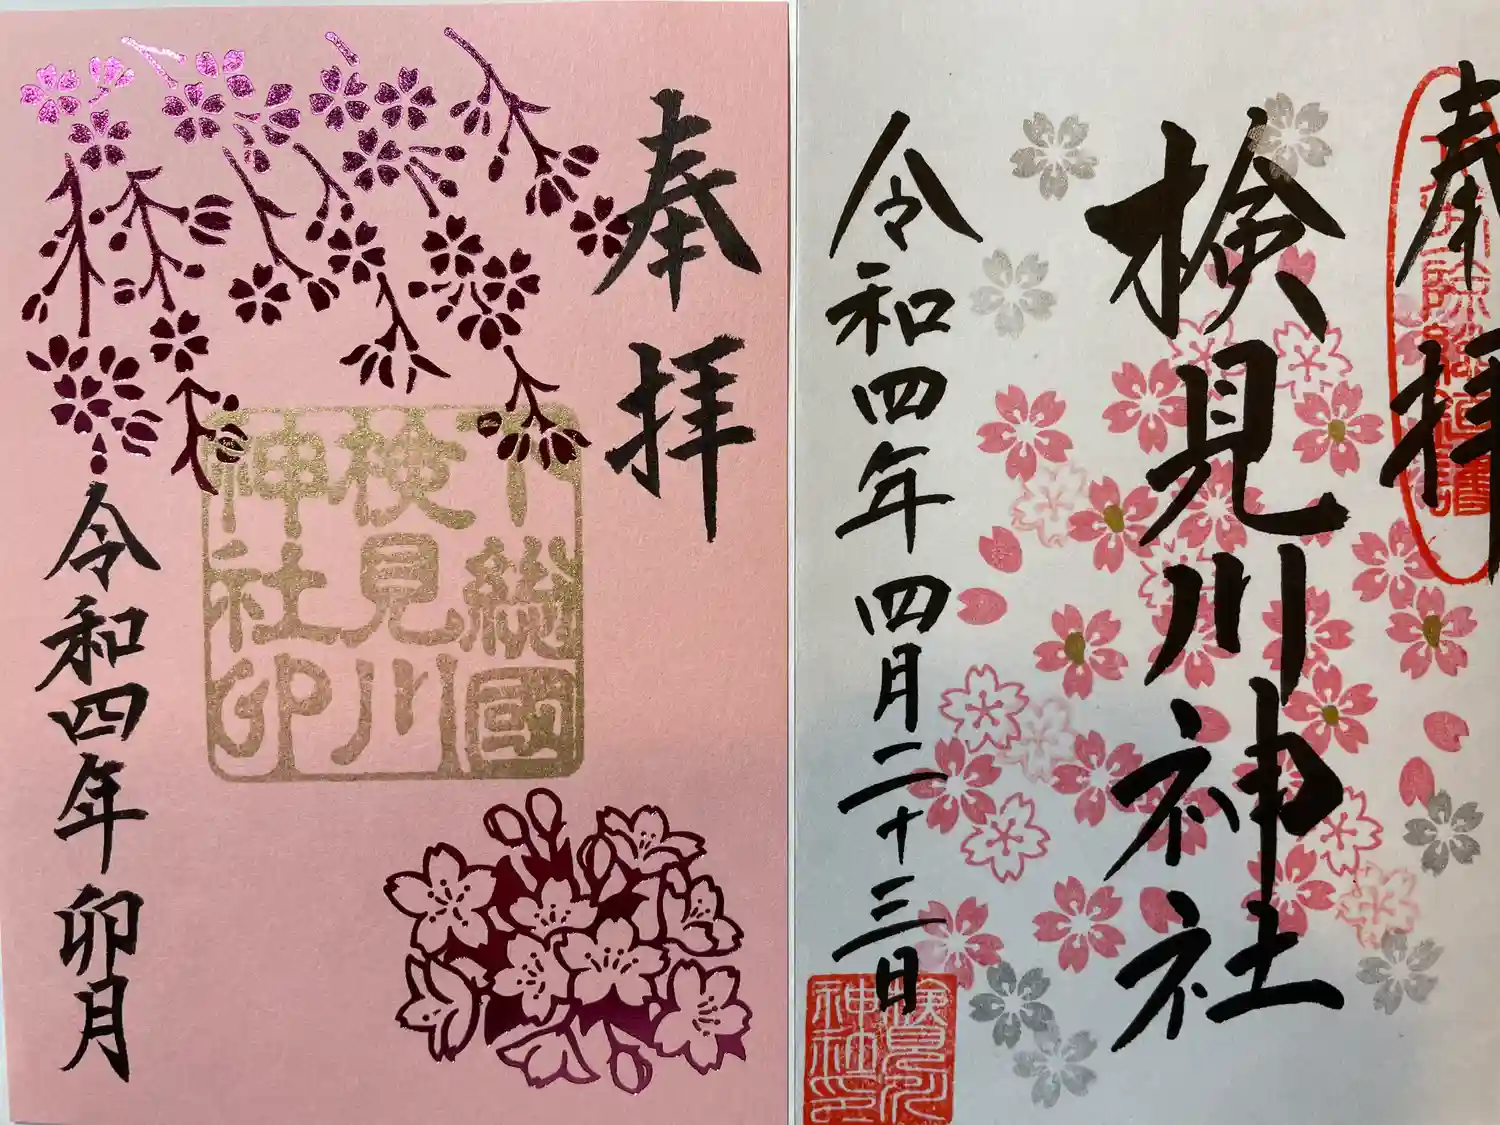 奉拝
下総國
検見川
神社印
令和四年卯月
奉拝
検見川神社
令和四年四月二十三日
検見川
神社印